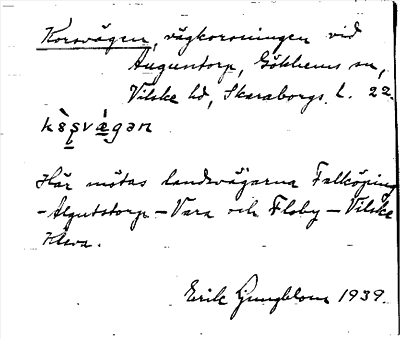 Korsvägen, vägkorsningen vid
Auguntorp, Gökhems sn,
Vilske hd, Skaraborgs l. 22.
Här mötas landsvägarna Falköping
-Ålgutstorp - Vara och Floby - Vilske
Kleva.
Erik Ljungblom 1939.